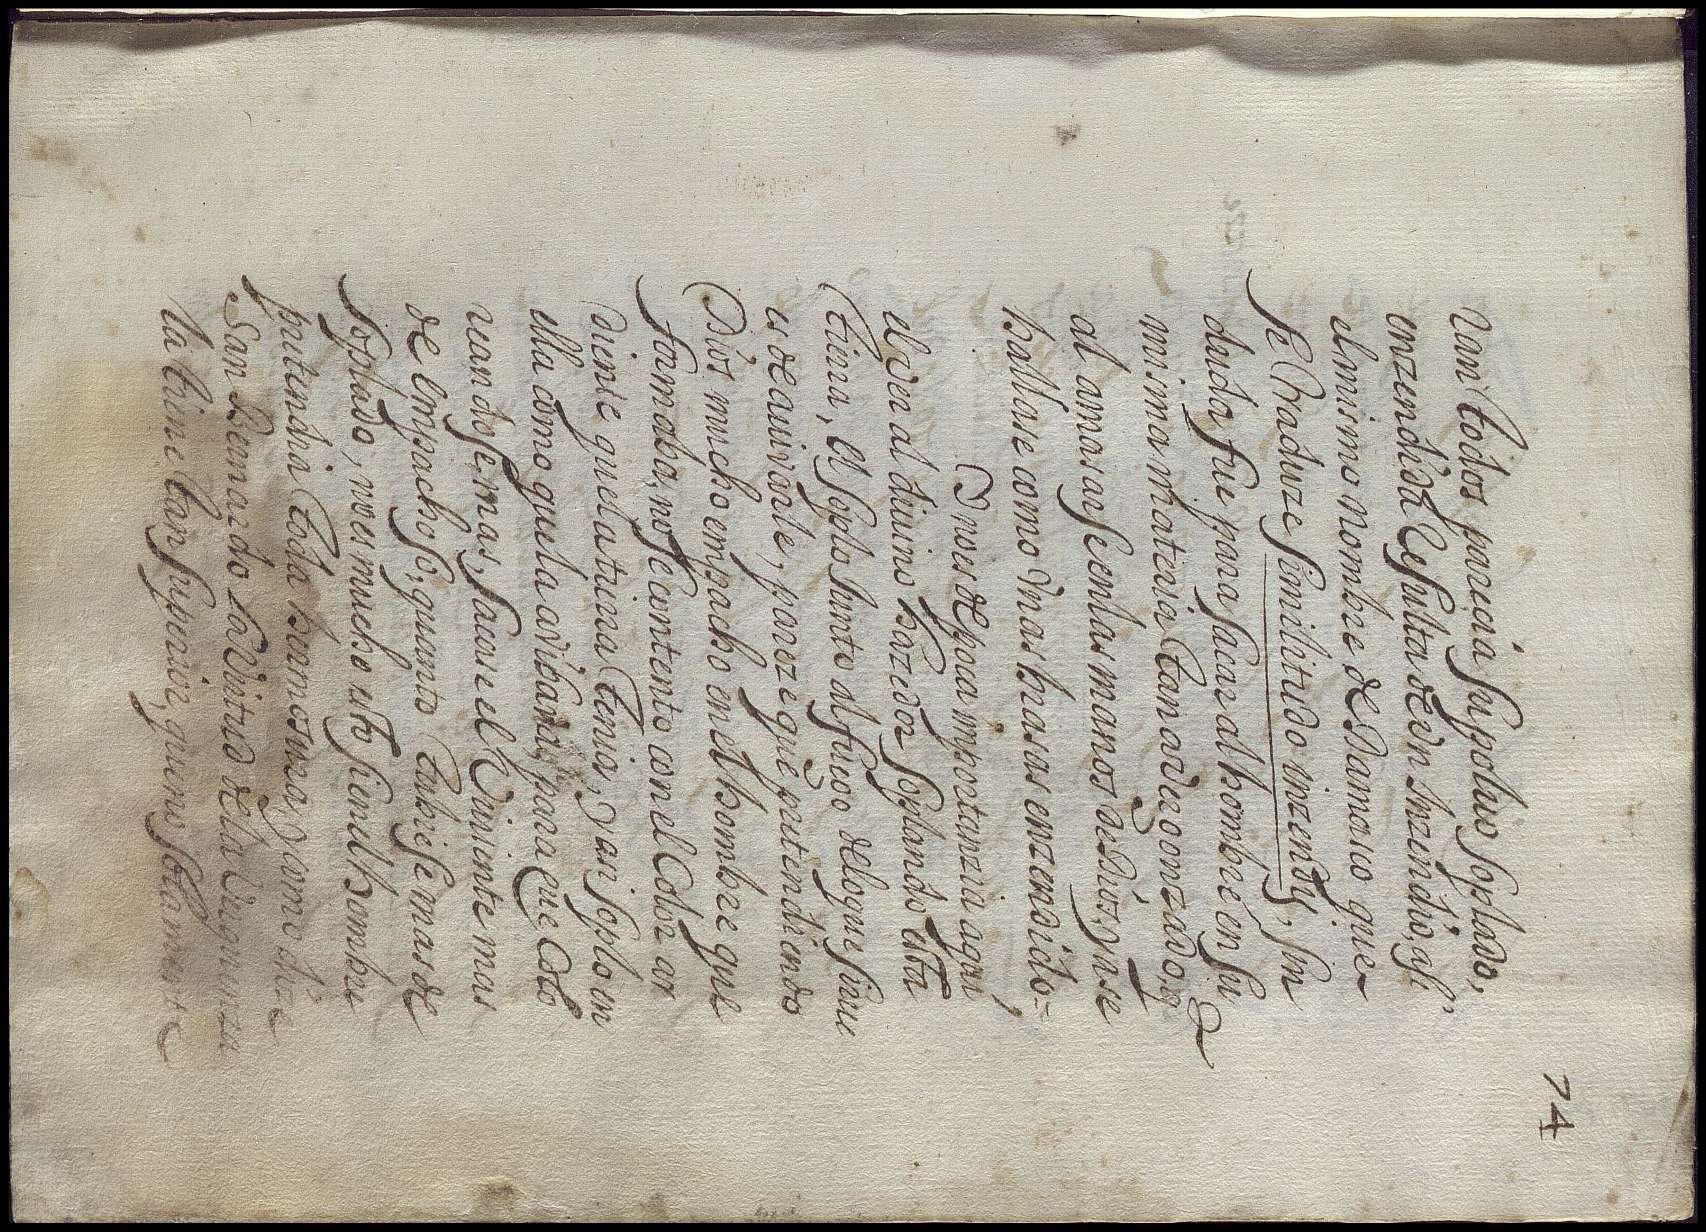 74
Vam todos parecia su polvo soplado,
enzendida Resulta de vn Inzendio, asi,
el mismo nombre de Damasco que
se traduze similitudo inzendij, sin
duda fue para sacar al hombre en su
misma materia tan advergonzado, q
al amasarse en las manos de Dios, y ase
hallase como vnas brasas enzendido=
I no es de poca importanzia aqui
el ver al diuino hazedor soplando esta
tierra, el soplo junto al fuego de lo que sirue
es de auiuarle, pareze que pretendiendo
Dios mucho empacho en el hombre que
formaba, no se contento con el color ar
diente que la tierra tenia, y asi soplo en
ella como que la avibaua, para que esto
ueandose mas, sacase el viuiente mas
de empachoso, quanto tubiese mas de
soplado, no es mucho esto si en el hombre
pretendia toda hermosura, y como dize
San Bernardo la virtud de la verguenza
la tiene tan superior, que no solamente